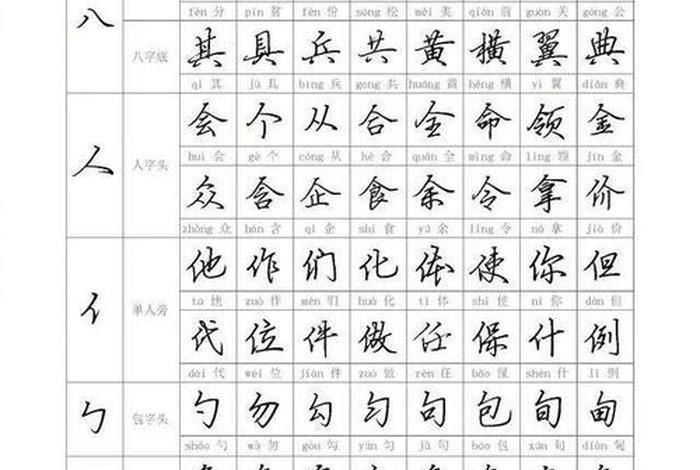 八
fēn 分 pín 贫 fèn 份 sōng 松 měi 美 qián 前 guān 关 gōng 公
八字底
其 具 兵 共 黄 横 翼 典
qí 其 jù 具 bīng 兵 gòng 共 huáng 黄 héng 横 yì 翼 diǎn 典
人
人字头
会 个 从 合 全 命 领 金
huì 会 gè 个 cóng 从 hé 合 quán 全 mìng 命 lǐng 领 jīn 金
众 含 企 食 余 令 拿 价
zhòng 众 hán 含 qǐ 企 shí 食 yú 余 lìng 令 ná 拿 jià 价
亻
单人旁
他 作 们 化 体 使 你 但
tā 他 zuò 作 mén 们 huà 化 tǐ 体 shǐ 使 nǐ 你 dàn 但
代 位 件 做 任 保 什 例
dài 代 wèi 位 jiàn 件 zuò 做 rèn 任 bǎo 保 shén 什 lì 例
勹
包字头
勺 勿 勾 匀 句 包 旬 甸
sháo 勺 wù 勿 gōu 勾 yún 匀 jù 句 bāo 包 xún 旬 diàn 甸